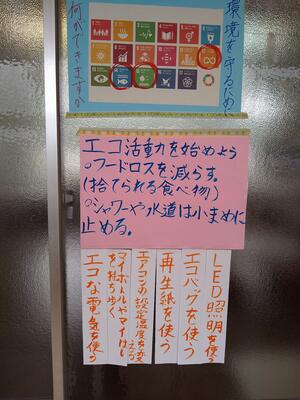 環境を守るために
何ができますか
エコ活動を始めよう
○フードロスを減らす
(捨てられる食べ物)
○シャワーや水道は小まめに
止める。
LED照明を使う
エコバッグを使う
再生紙を使う
エアコンの設定温度を変える
マイボトルやマイはし
を持ち歩く
エコな電気を使う